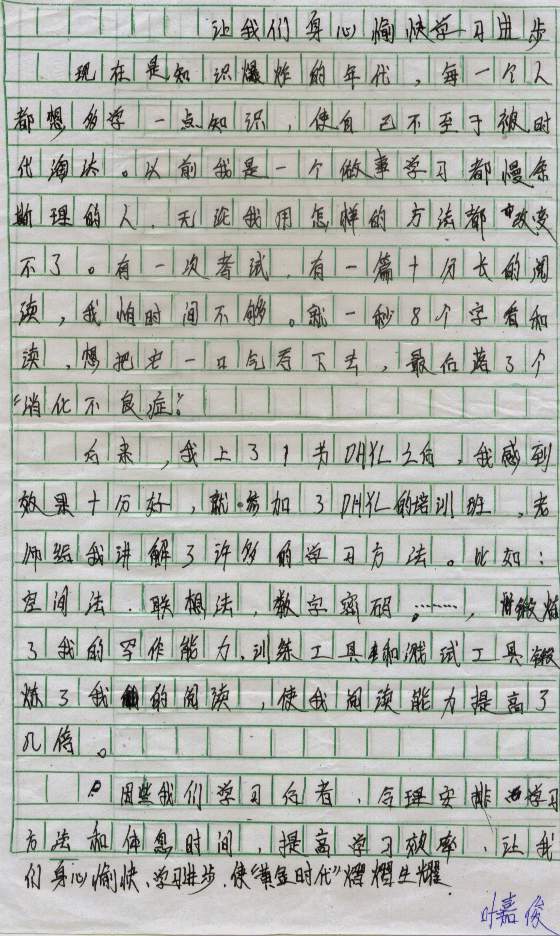 让我们身心愉快学习进步
现在是知识爆炸的年代，每一个人
都想多学一点知识，使自己不至于被时
代淘汰。以前我是一个做事学习都慢条
斯理的人，无论我用怎样的方法都改变
不了。有一次考试，有一篇十分长的阅
读，我怕时间不够。就一秒8个字看和
读，想把它一口气看下去，最后落了个
“消化不良症”。
后来，我上了1节DHYL之后，我感到
效果十分好，就参加了DHYL的培训班，老
师给我讲解了许多的学习方法。比如：
空间法．联想法，数字密码……，锻炼
了我的写作能力，训练工具和测试工具锻
炼了我的阅读，使我阅读能力提高了
几倍。
因些我们学习后者，合理安排学习
方法和休息时间，提高学习效率，让我
们身心愉快、学习进步，使“黄金时代”熠熠生耀
叶嘉俊